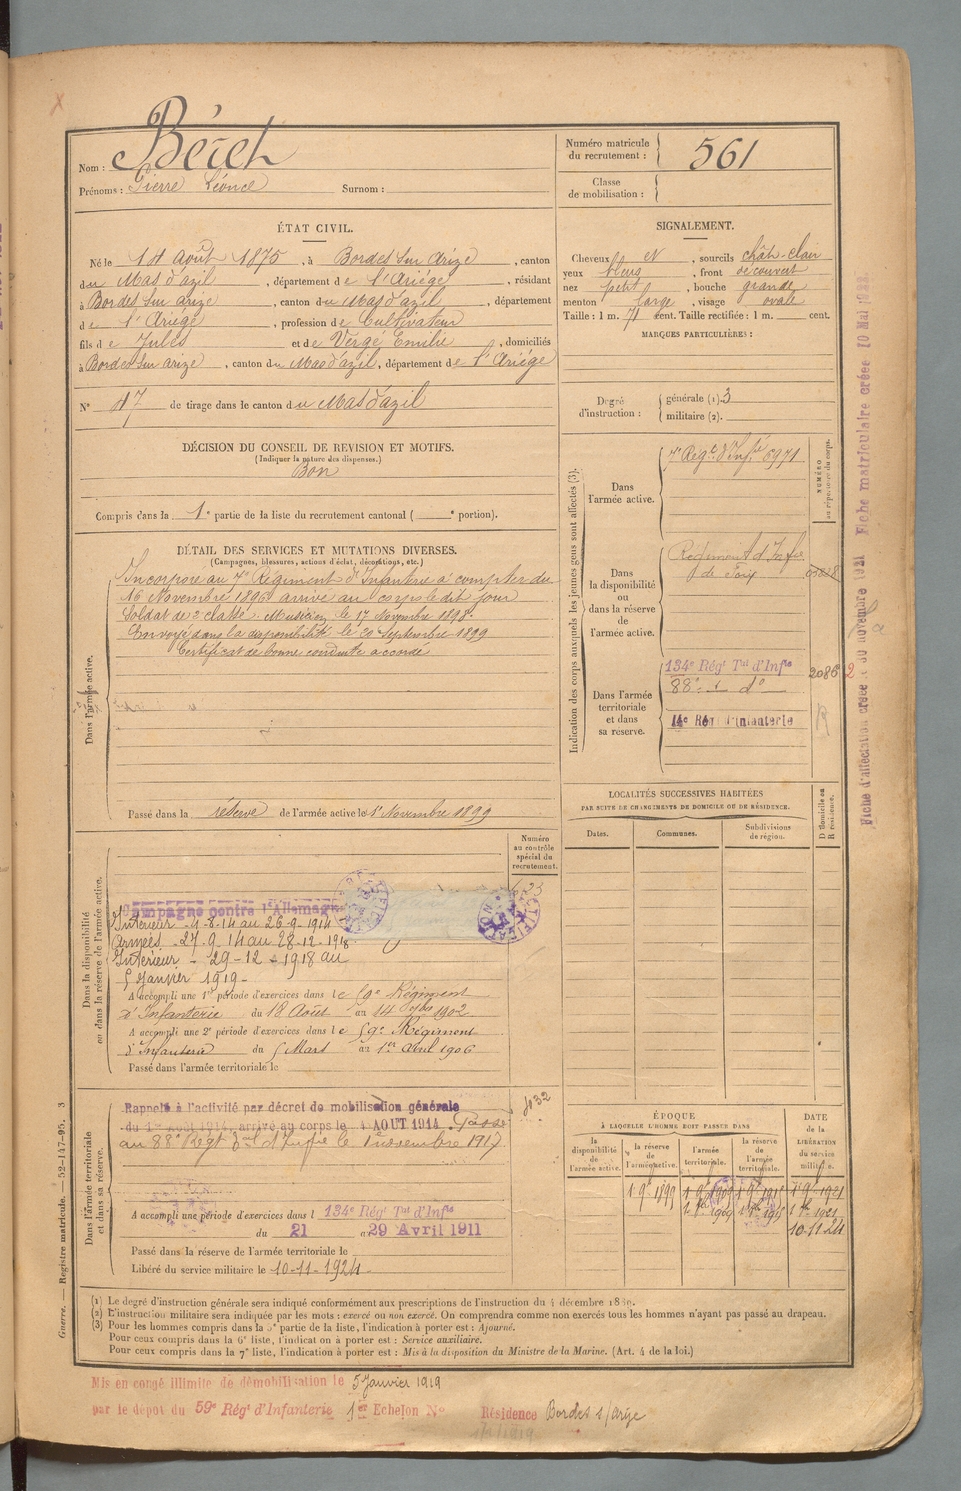 Nom : Béreh
Prénoms : Pierre Léonce Surnom :
Numéro matricule du recrutement : 561
Classe de mobilisation :
ÉTAT CIVIL.
Né le 14 Août 1875, à Bordes sur Arize, canton
du Mas d'azil, département de l'Ariége, résidant
à Bordes sur arize, canton du Mas d'azil, département
de l'Ariége, profession de Cultivateur
fils de Jules et de Verge Emilie, domiciliés
à Bordes sur arize, canton du Mas d'azil, département de l'Ariége
N° 47 de tirage dans le canton du Mas d'azil
SIGNALEMENT.
Cheveux et, sourcils chât. clair
yeux bleus, front découvert
nez petit, bouche grande
menton large, visage ovale
Taille : 1 m. 71 cent. Taille rectifiée : 1 m. cent.
MARQUES PARTICULIÈRES :
Degré d'instruction : générale (1). 3
militaire (2).
DÉCISION DU CONSEIL DE REVISION ET MOTIFS.
(Indiquer la nature des dispenses.)
Bon
Compris dans la 1e partie de la liste du recrutement cantonal ( e portion).
DÉTAIL DES SERVICES ET MUTATIONS DIVERSES.
(Campagnes, blessures, actions d'éclat, décorations, etc.)
Dans l'armée active.
Incorporé au 7e Régiment d'Infanterie à compter du
16 Novembre 1896 arrivé au corps le dit jour
Soldat de 2e classe. Musicien le 17 Novembre 1898.
Envoyé dans la disponibilité le 20 Septembre 1899
Certificat de bonne conduite accordé
Passé dans la réserve de l'armée active le 1er Novembre 1899
Indication des corps auxquels les jeunes gens sont affectés (3).
NUMÉRO au répertoire du corps.
Dans l'armée active.
7e Régt d'Infie 6971
Dans la disponibilité ou dans la réserve de l'armée active.
Régiment d'Infie
de Foix
Dans l'armée territoriale et dans sa réserve.
134e Régt Tal d'Infie 2086
88e - do
14e Rég d'infanterie
R
LOCALITÉS SUCCESSIVES HABITÉES
PAR SUITE DE CHANGEMENTS DE DOMICILE OU DE RÉSIDENCE.
Dates. Communes. Subdivisions de région. D Domicile ou R résidence.
Numéro au contrôle spécial du recrutement.
Dans la disponibilité ou dans la réserve de l'armée active.
Campagne contre l'Allemagne
Intérieur - 4-8-14 au 26-9-1914
Armées - 27-9-14 au 28-12-1918
Intérieur - 29-12-1918 au
5 Janvier 1919 -
A accompli une 1re période d'exercices dans le 59e Régiment
d'Infanterie du 18 Août au 14 7bre 1902
A accompli une 2e période d'exercices dans le 59e Régiment
d'Infanterie du 5 Mars au 1er Avril 1906
Passé dans l'armée territoriale le
Dans l'armée territoriale et dans sa réserve.
Rappelé à l'activité par décret de mobilisation générale
du 1er Août 1914, arrivé au corps le 4 AOUT 1914. Passé
au 88e Régt Tal d'Infie le 1er novembre 1917.
A accompli une période d'exercices dans l 134e Régt Tal d'Infie
du 21 au 29 Avril 1911
Passé dans la réserve de l'armée territoriale le
Libéré du service militaire le 10-11-1924
ÉPOQUE
À LAQUELLE L'HOMME DOIT PASSER DANS
la disponibilité de l'armée active. la réserve de l'armée active. l'armée territoriale. la réserve de l'armée territoriale.
DATE de la LIBÉRATION du service militaire.
1 9e 1899
10-11-24
(1) Le degré d'instruction générale sera indiqué conformément aux prescriptions de l'instruction du 4 décembre 1889.
(2) L'instruction militaire sera indiquée par les mots : exercé ou non exercé. On comprendra comme non exercés tous les hommes n'ayant pas passé au drapeau.
(3) Pour les hommes compris dans la 5e partie de la liste, l'indication à porter est : Ajourné.
Pour ceux compris dans la 6e liste, l'indication à porter est : Service auxiliaire.
Pour ceux compris dans la 7e liste, l'indication à porter est : Mis à la disposition du Ministre de la Marine. (Art. 4 de la loi.)
Mis en congé illimité de démobilisation le 5 Janvier 1919
par le dépôt du 59e Régt d'Infanterie 1er Echelon No Résidence Bordes s/Arize
Guerre. — Registre matricule. — 52-147-95. 3
Fiche d'affectation créée le 30 novembre 1921 Fiche matriculaire créée 10 Mai